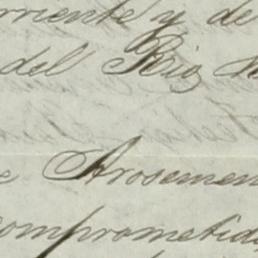 rriente y de
del Rio
Arosemen
comprometid